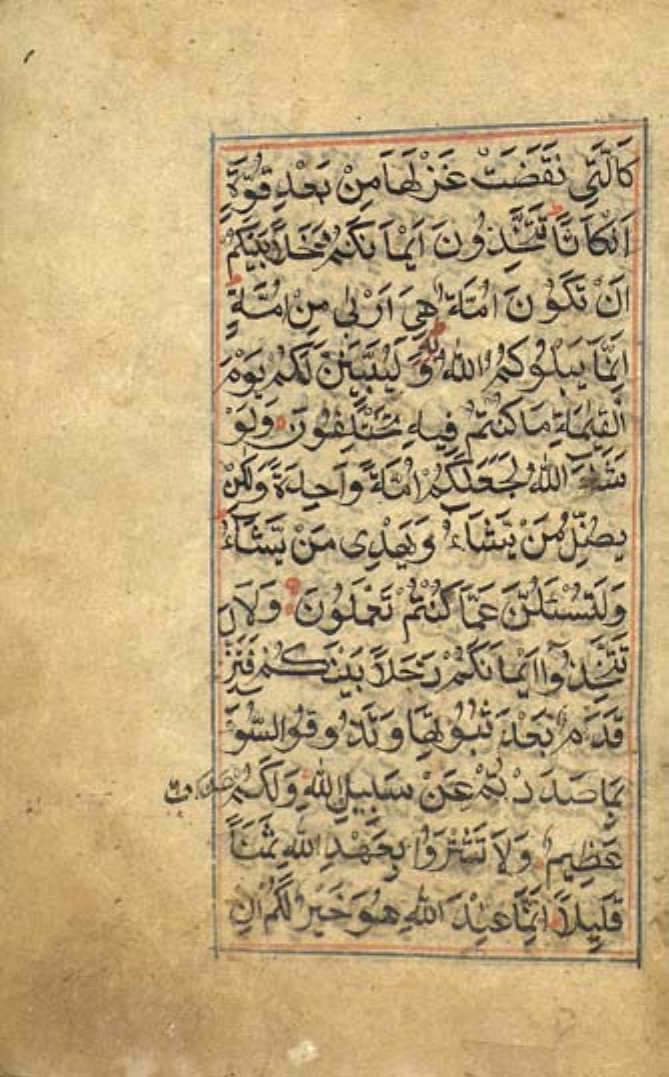 كَالَّتِي نَقَضَتْ غَزْلَهَا مِنْ بَعْدِ قُوَّةٍ
اَنْكَاثًا تَتَّخِذُونَ اَيْمَانَكُمْ دَخَلًا بَيْنَكُمْ
اَنْ تَكُونَ اُمَّةٌ هِيَ اَرْبٰى مِنْ اُمَّةٍ
اِنَّمَا يَبْلُوكُمُ اللهُ بِهِ وَلَيُبَيِّنَنَّ لَكُمْ يَوْمَ
الْقِيٰمَةِ مَا كُنْتُمْ فِيهِ تَخْتَلِفُونَ وَلَوْ
شَاءَ اللهُ لَجَعَلَكُمْ اُمَّةً وَاحِدَةً وَلٰكِنْ
يُضِلُّ مَنْ يَّشَاءُ وَيَهْدِى مَنْ يَّشَاءُ
وَلَتُسْئَلُنَّ عَمَّا كُنْتُمْ تَعْمَلُونَ وَلَا
تَتَّخِذُوا اَيْمَانَكُمْ دَخَلًا بَيْنَكُمْ فَتَزِلَّ
قَدَمٌ بَعْدَ ثُبُوتِهَا وَتَذُوقُوا السُّوءَ
بِمَا صَدَدْتُمْ عَنْ سَبِيلِ اللهِ وَلَكُمْ
عَظِيمٌ وَلَا تَشْتَرُوا بِعَهْدِ اللهِ ثَمَنًا
قَلِيلًا اِنَّمَا عِنْدَ اللهِ هُوَ خَيْرٌ لَكُمْ اِنْ